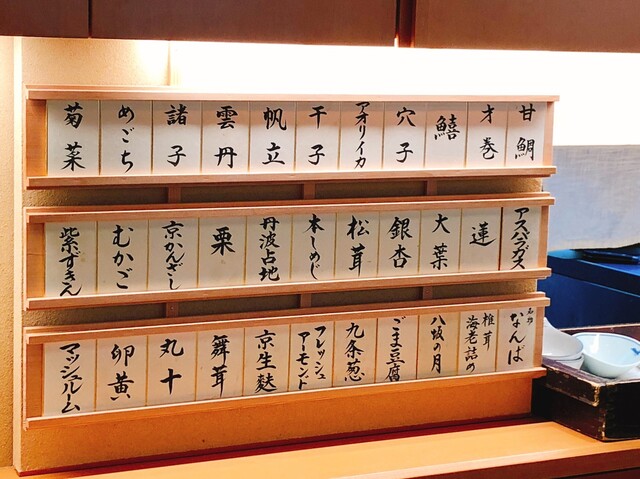 甘鯛
才巻
鱚
穴子
アオリイカ
干子
帆立
雲丹
諸子
めごち
菊菜
アスパラガス
蓮
大葉
銀杏
松茸
本しめじ
丹波占地
栗
京かんざし
むかご
紫ずきん
なんば
椎茸
海老詰め
八坂の月
ごま豆腐
九条葱
フレッシュ
アーモンド
京生麩
舞茸
丸十
卵黄
マッシュルーム